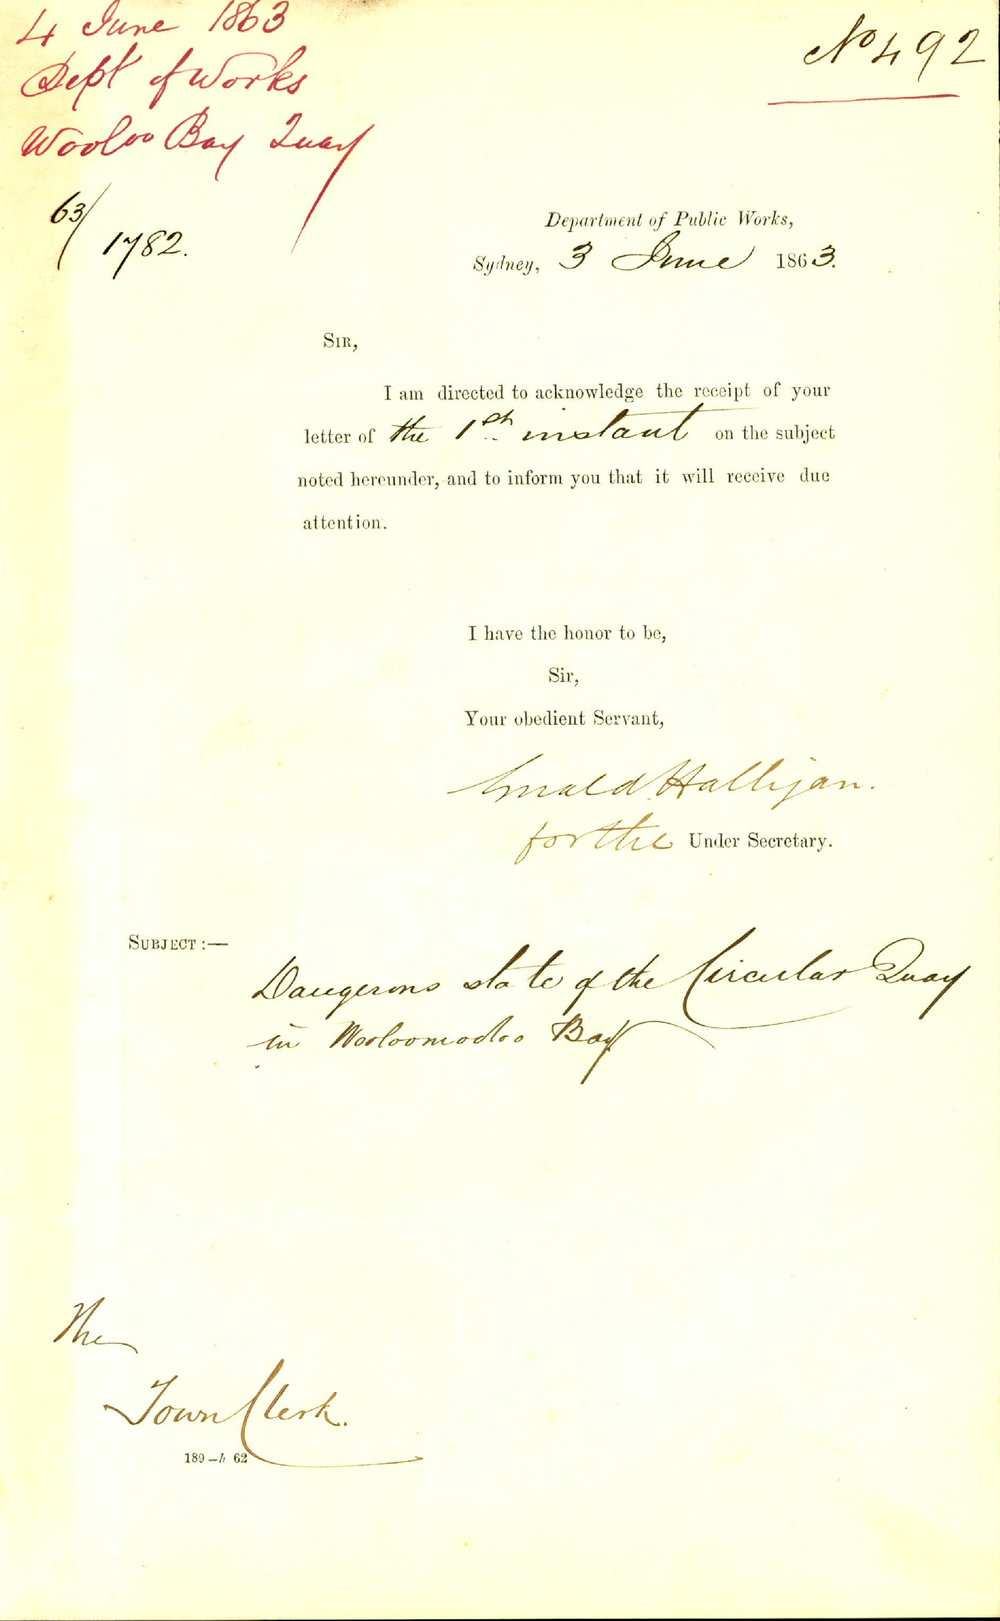 4 June 1863
Dept of Works
Wooloo Bay Quay
No 492
63/
1782.
Department of Public Works,
Sydney, 3 June 1863.
SIR,
I am directed to acknowledge the receipt of your
letter of the 1st instant on the subject
noted hereunder, and to inform you that it will receive due
attention.
I have the honor to be,
Sir,
Your obedient Servant,
Gerald Halligan.
for the Under Secretary.
SUBJECT :—
Dangerous state of the Circular Quay
in Wooloomooloo Bay
The
Town Clerk.
189—h 62